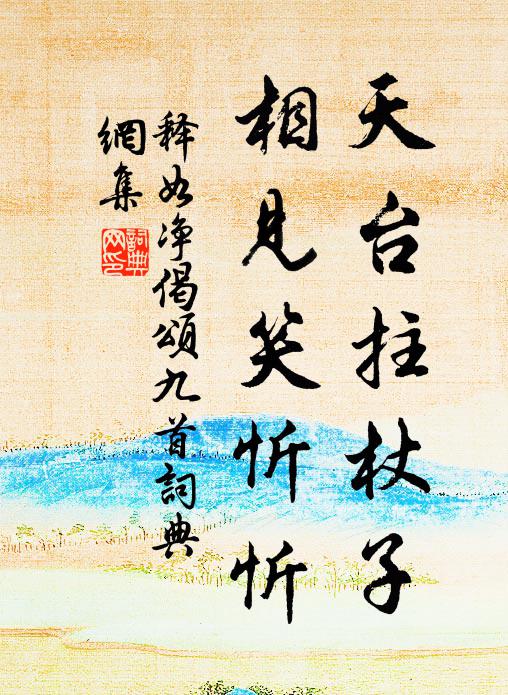 天台拄杖子
相見笑忻忻
释如净偈頌九首詞典
網集
詞典网印